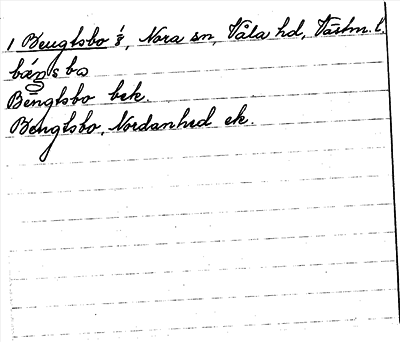 1 Bengtsbo s, Nora sn, Våla hd, Västm. l.
bäŋsbo
Bengtsbo bek.
Bengtsbo, Nordanhed ek.